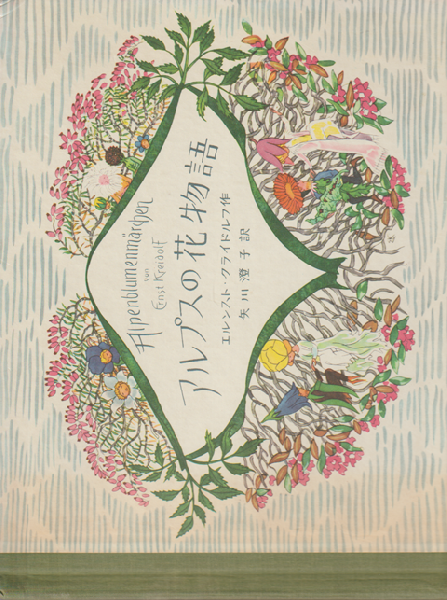 Alpenblumenmärchen
von
Ernst Kreidolf
アルプスの花物語
エルンスト・クライドルフ作
矢川澄子訳